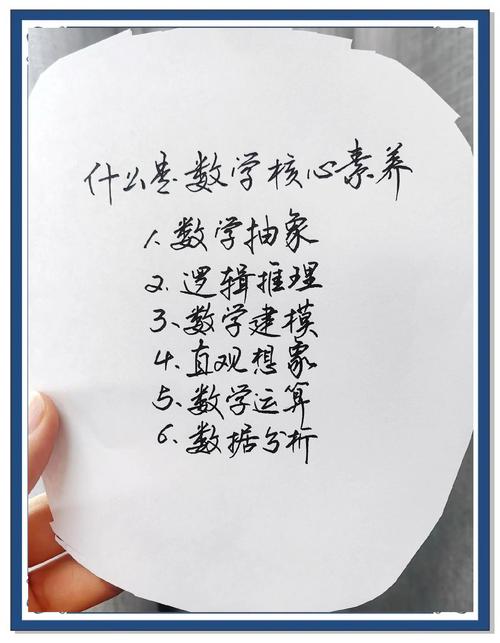 什么是数学核心素养
1、数学抽象
2、逻辑推理
3、数学建模
4、直观想象
5、数学运算
6、数据分析